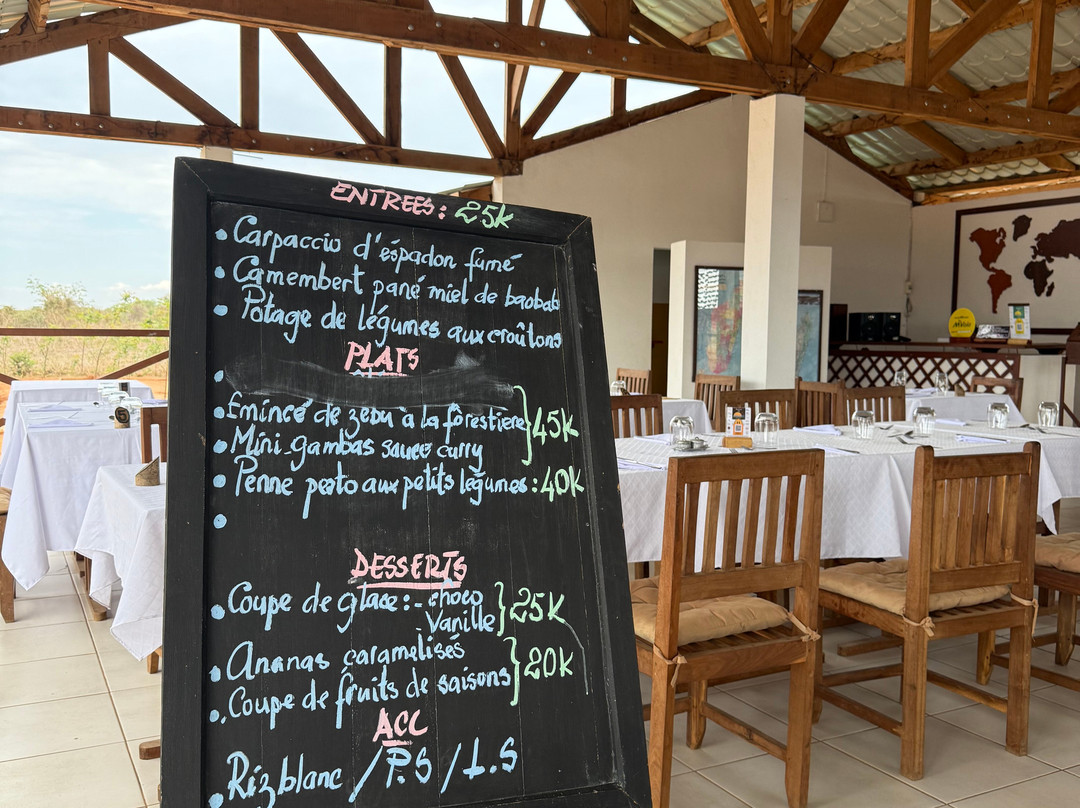 ENTREES: 25k
• Carpaccio d'éspadon fumé
• Camembert pané miel de baobab
• Potage de légumes aux croûtons
PLATS
•
• Emincé de zebu à la forestiere
• Mini-gambas sauce curry } 45k
• Penne pesto aux petits légumes : 40k
•
DESSERTS
• Coupe de glace : - choco
- Vanille } 25k
• Ananas caramelisés
• Coupe de fruits de saisons } 20k
ACC
• Riz blanc / P.S / L.S